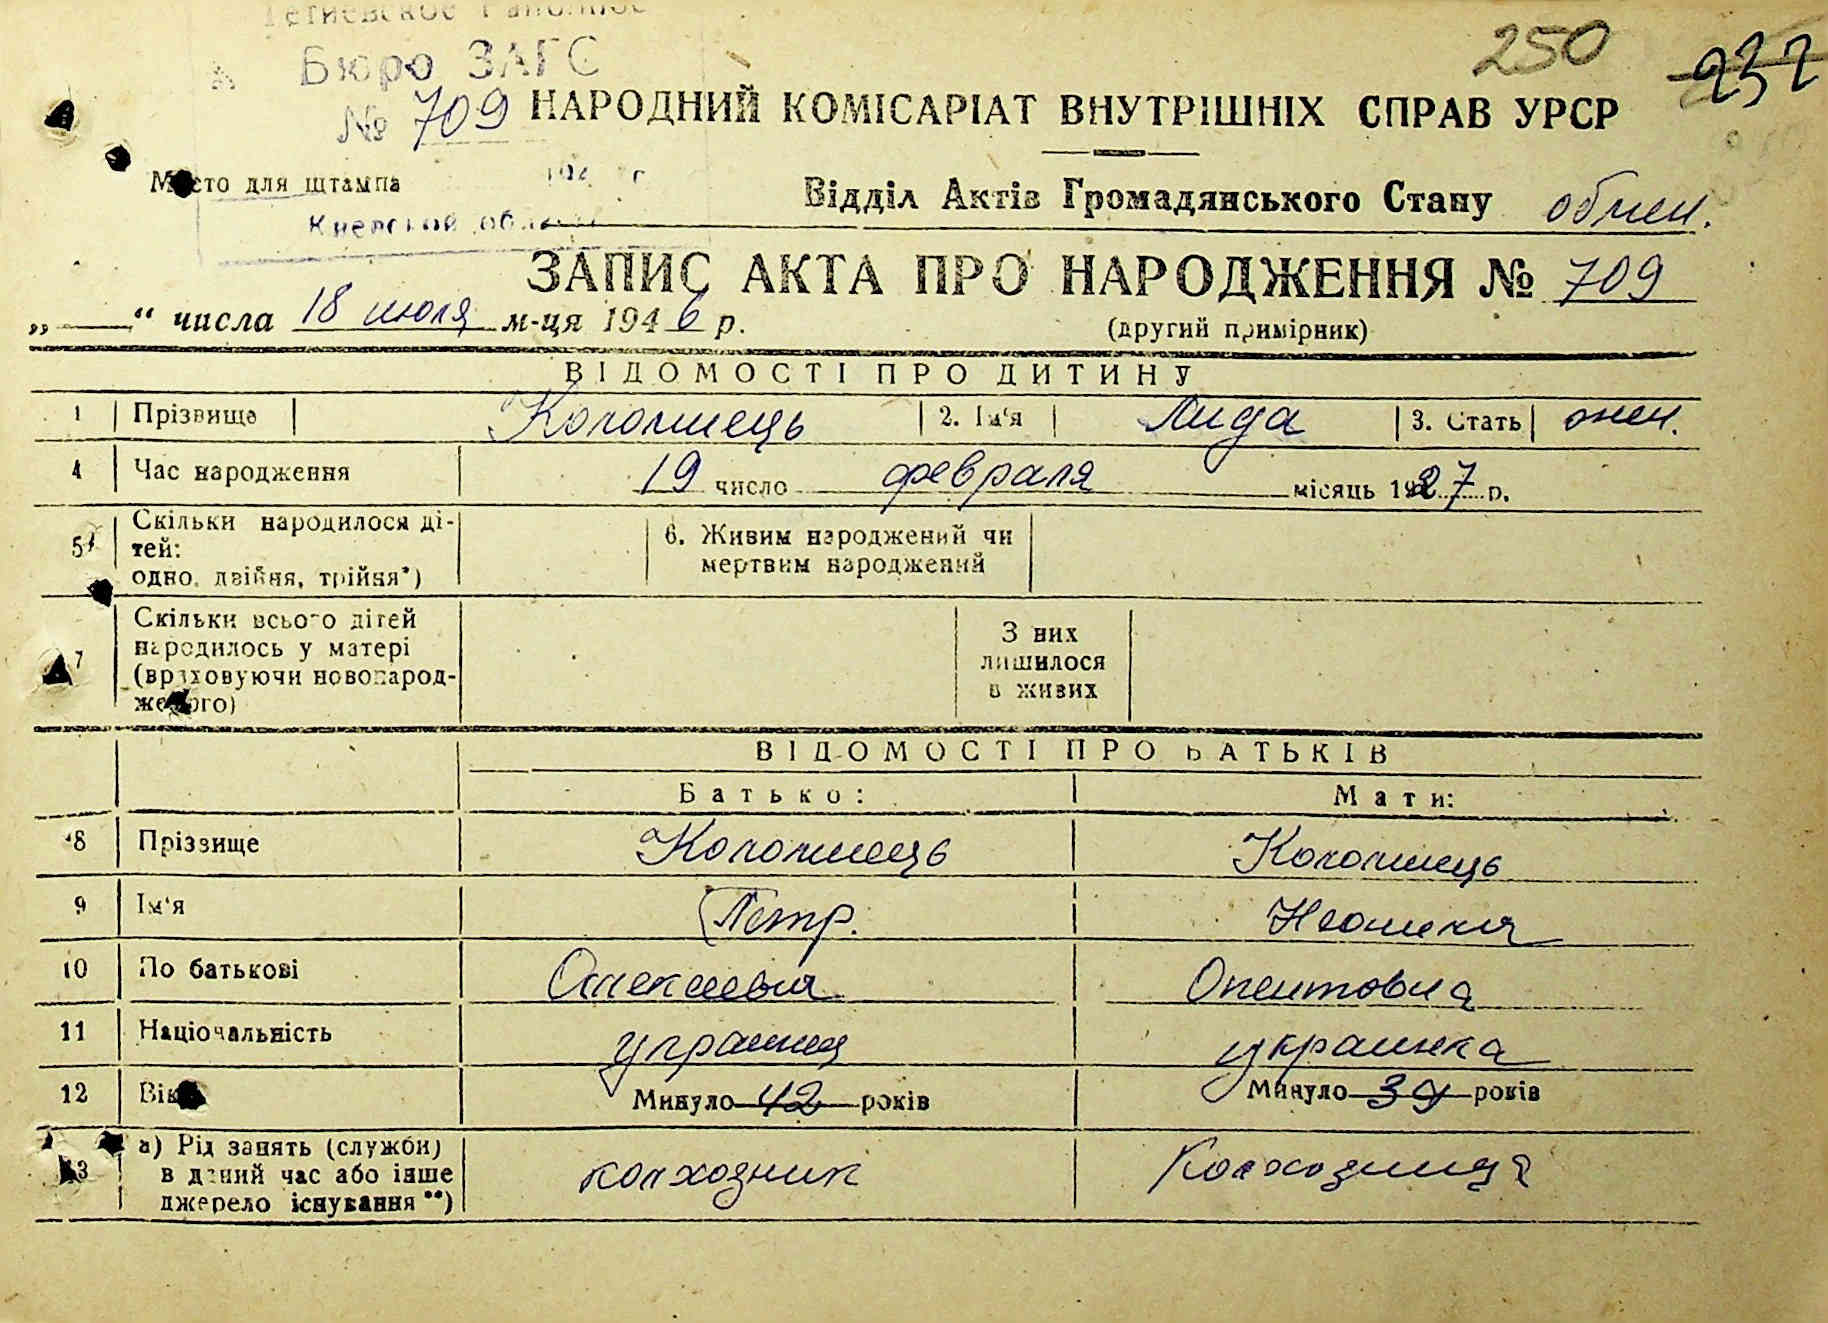 Тетиевское Районное
250 237
Бюро ЗАГС
№ 709 НАРОДНИЙ КОМІСАРІАТ ВНУТРІШНІХ СПРАВ УРСР
Місто для штампа
Відділ Актів Громадянського Стану обмен.
Киевской области
ЗАПИС АКТА ПРО НАРОДЖЕННЯ № 709
„ — “ числа 18 июля м-ця 1946 р. (другий примірник)
ВІДОМОСТІ ПРО ДИТИНУ
1 Прізвище Коломиець 2. Ім'я Лида 3. Стать жен.
4 Час народження 19 число февраля місяць 1927 р.
5 Скільки народилося ді-
тей:
одно, двійня, трійня*)
6. Живим народжений чи
мертвим народжений
7 Скільки всього дітей
народилось у матері
(враховуючи новонарод-
женого)
З них
лишилося
в живих
ВІДОМОСТІ ПРО БАТЬКІВ
Батько: Мати:
8 Прізвище Коломиець Коломиець
9 Ім'я Петр.
10 По батькові
11 Національність украинец украинка
12 Вік Минуло 42 років Минуло 39 років
13 а) Рід занять (служби)
в даний час або інше
джерело існування**)
колхозник Колхозница